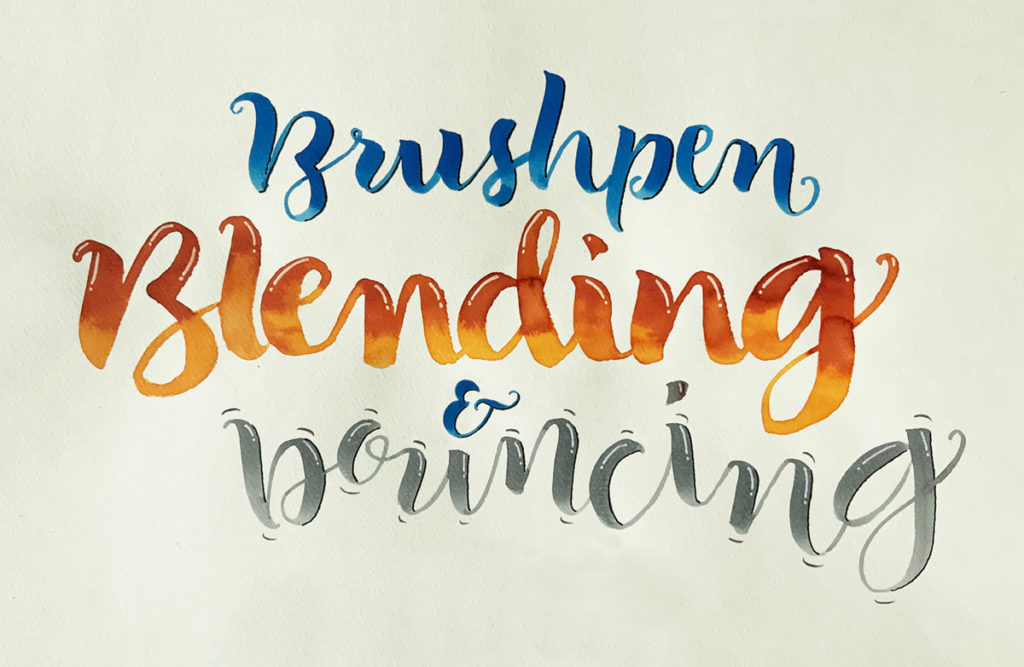 Brushpen
Blending
&
bouncing